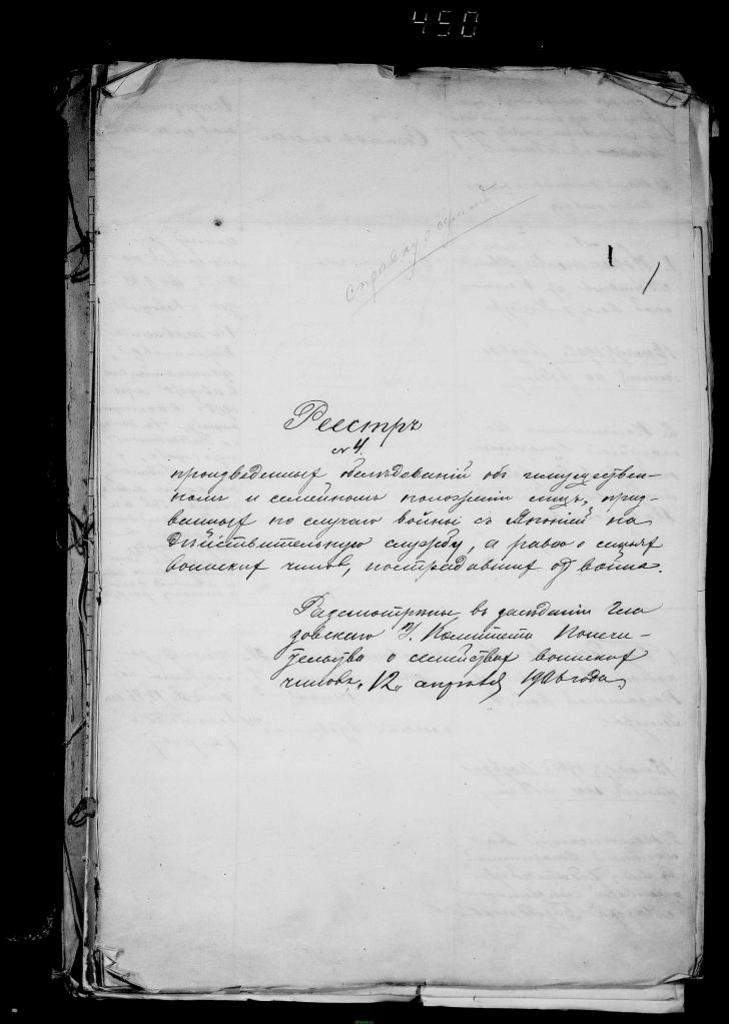 450
1
Реестръ
№ 4.
произведенныхъ обслѣдованій объ имуществен-
номъ и семейномъ положеніи лицъ, приз-
ванныхъ по случаю войны съ Японіей на
дѣйствительную службу, а равно о семьяхъ
воинскихъ чиновъ, пострадавшихъ отъ войны.
Разсмотрены въ засѣданіи Гла
зовскаго У. Комитета Попечи-
тельства о семействахъ воинскихъ
чиновъ. "12" апрѣля 1906 года.